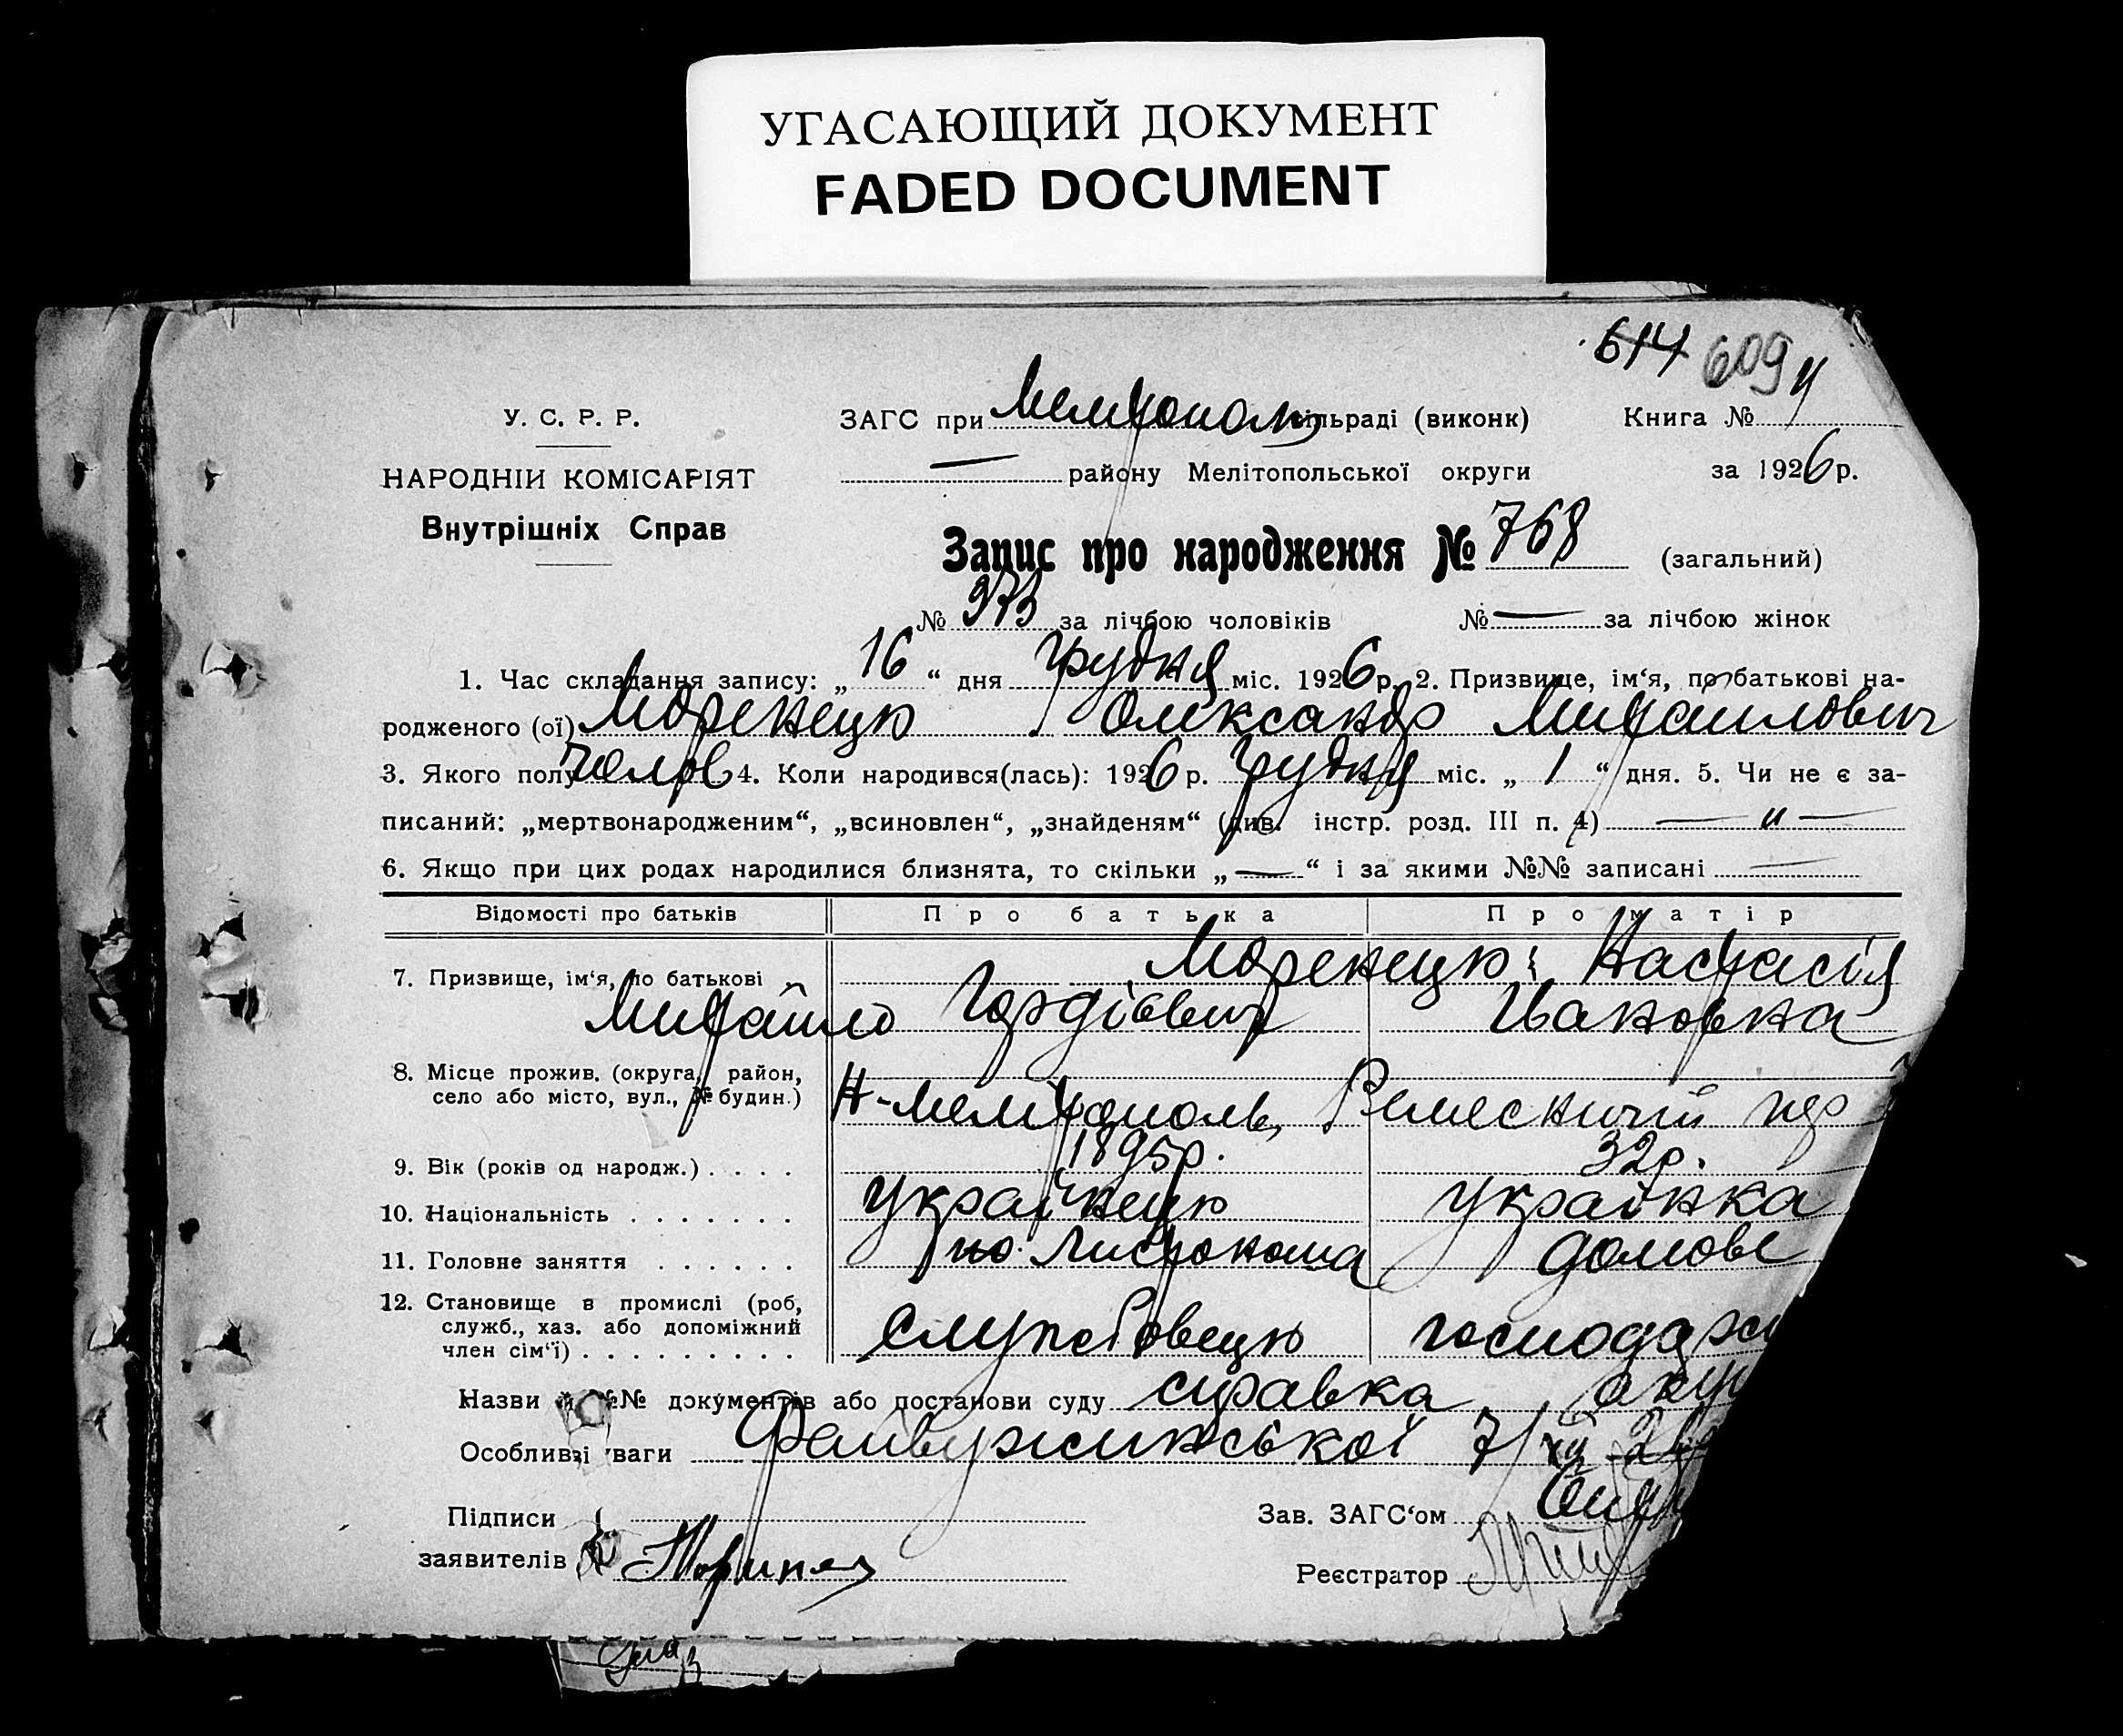 УГАСАЮЩИЙ ДОКУМЕНТ
FADED DOCUMENT
614 609
У. С. Р. Р.
ЗАГС при Мелітополь сільраді (виконк) Книга №
НАРОДНІЙ КОМІСАРІЯТ
— району Мелітопольської округи за 1926 р.
Внутрішніх Справ
Запис про народження № 768 (загальний)
№ 373 за лічбою чоловіків № — за лічбою жінок
1. Час складання запису: „16“ дня грудня міс. 1926 р. 2. Призвище, ім‘я, по батькові на-
родженого (ої) Моренець Олександр Михайлович
3. Якого полу чолов 4. Коли народився(лась): 1926 р. грудня міс. „1“ дня. 5. Чи не є за-
писаний: „мертвонародженим“, „всиновлен“, „знайденям“ (див. інстр. розд. III п. 4) — „ —
6. Якщо при цих родах народилися близнята, то скільки „—“ і за якими №№ записані —
Відомості про батьків Про батька Про матір
7. Призвище, ім‘я, по батькові Моренець: Настасія
Михайло Гордієвич Івановна
8. Місце прожив. (округа, район,
село або місто, вул., № будин.) Н-Мелітополь, Ремесничий пер
9. Вік (років од народж.) . . . . 1895р. 32р.
10. Національність . . . . . . . українець українка
11. Головне заняття . . . . . . листоноша домове
12. Становище в промислі (роб,
служб., хаз. або допоміжний службовець господарс
член сім‘ї) . . . . . . . . .
Назви й №№ документів або постанови суду справка акуш
Особливі уваги 7/XII 26
Підписи Зав. ЗАГС‘ом
заявителів Реєстратор